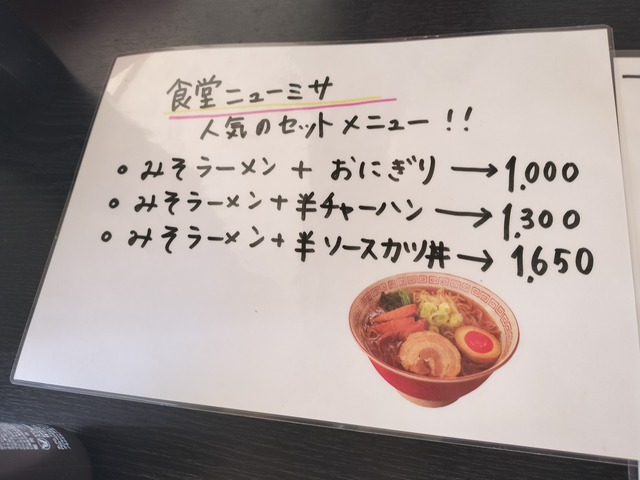 食堂ニューミサ
人気のセットメニュー!!
• みそラーメン + おにぎり → 1,000
• みそラーメン + 半チャーハン → 1,300
• みそラーメン + 半ソースカツ丼 → 1,650